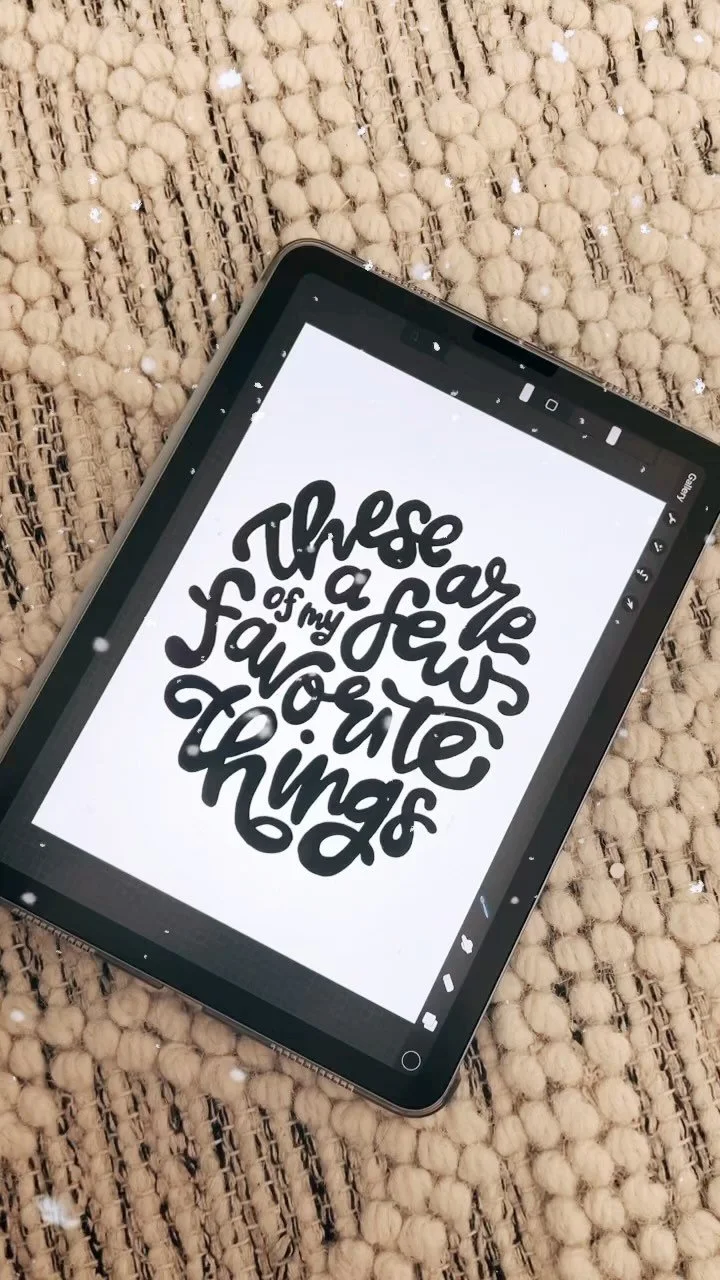 Gallery
These are
a few
of my
favorite
things